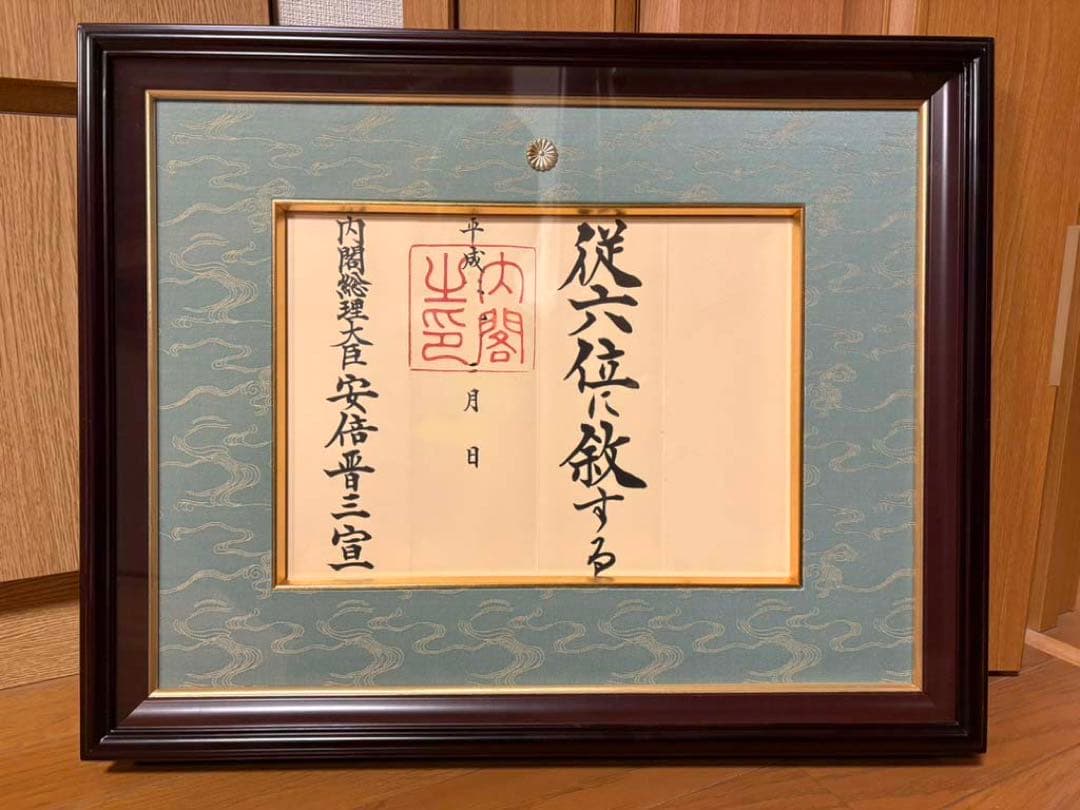 従六位に敘する
平成 月 日
内閣之印
内閣総理大臣安倍晋三宣